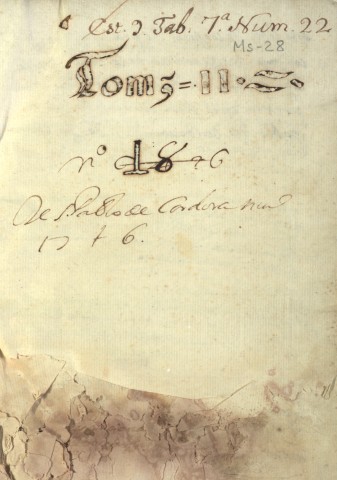 Est. 9 Tab. 7.ª Num. 22
Ms-28
Tom9 = II.
nº 18
De Pablo de Cordova
1 7 t 6.